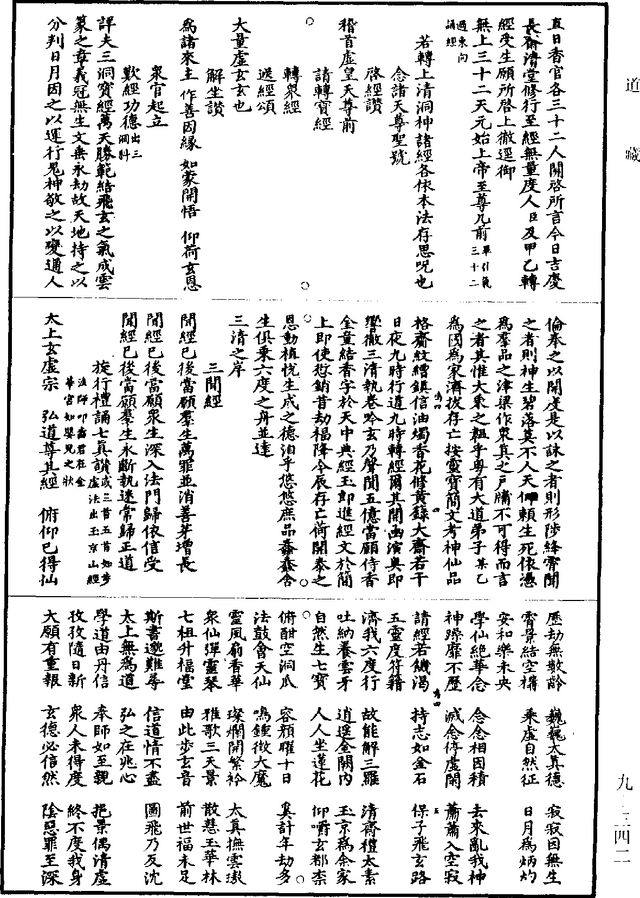 道藏
直日香官各三十二人開啓所言今日吉慶
長齋清堂修行至經無量度人臣及甲乙轉
經受生願所啓上徹逕御
無上三十二天元始上帝至尊几前單引氣三十二
過東向誦經
若轉上清洞神諸經各依本法存思呪也
念諸天尊聖號
啓經讚
稽首虛皇天尊前
請轉寶經
轉衆經
送經頌
大量虛玄玄也
解坐讚
爲諸來主 作善因緣 如蒙開悟 仰荷玄恩
衆官起立
歎經功德出三洞科
詳夫三洞寶經萬天勝範結飛玄之氣成雲
篆之章義冠無生文垂永劫故天地持之以
分判日月因之以運行鬼神敬之以變通人
倫奉之以開度是以詠之者則形陟絳霄聞
之者則神生碧落莫不人天俱賴生死依憑
爲羣品之津梁作衆真之戶牖不可得而言
之者其惟大乘之軀乎粤有大道弟子某乙
爲國爲家濟拔存亡按靈寶簡文考神仙品
格齋紋繒鎮信油燭香花修黃籙大齋若干
日夜九時行道九時轉經爾其開函演奧即
響徹三清執卷吟玄乃聲聞五億當願侍香
金童結香字於天中典經玉郎進經文於簡
上即使愆銷昔劫福降今辰存亡荷開泰之
恩動植恱生成之德洎乎悠悠庶品蠢蠢含
生俱乘六度之舟並達
三清之岸
三聞經
聞經已後當願羣生萬罪並消善芽增長
聞經已後當願衆生深入法門歸依信受
聞經已後當願羣生永斷執迷常歸正道
旋行禮誦七真讚或三首五首如步虛法出玉京山經
法師叩齒君在金華宮如嬰兒之狀
太上玄虛宗 弘道尊其經 俯仰已得仙
歷劫無數齡 巍巍太真德 寂寂因無生
霄景結空構 乘虛自然征 日月爲炳灼
安和樂未央
學仙絶華念 念念相因積 去來亂我神
神躁靡不歷 滅念停虛閑 蕭蕭入空寂
請經若饑渴 持志如金石 保子飛玄路
五靈度符籍
濟我六度行 故能解三羅 清齋禮太素
吐納養雲牙 逍遥金闕内 玉京爲余家
自然生七寶 人人坐蓮花 仰嚼玄都柰
俯酣空洞瓜 容顔曜十日 奚計年劫多
法鼓會天仙 鳴鍾徵大魔
靈風扇香華 璨爛開繁衿 太真撫雲璈
衆仙彈靈琴 雅歌三天景 散慧玉華林
七祖升福堂 由此步玄音 前世福未足
斯書邈難尋 信道情不盡 圖飛乃反沈
太上無爲道 弘之在兆心
學道由丹信 奉師如至親 挹景偶清虛
孜孜隨日新 衆人未得度 終不度我身
大願有重報 玄德必信然 陰惡罪至深
九-三四二